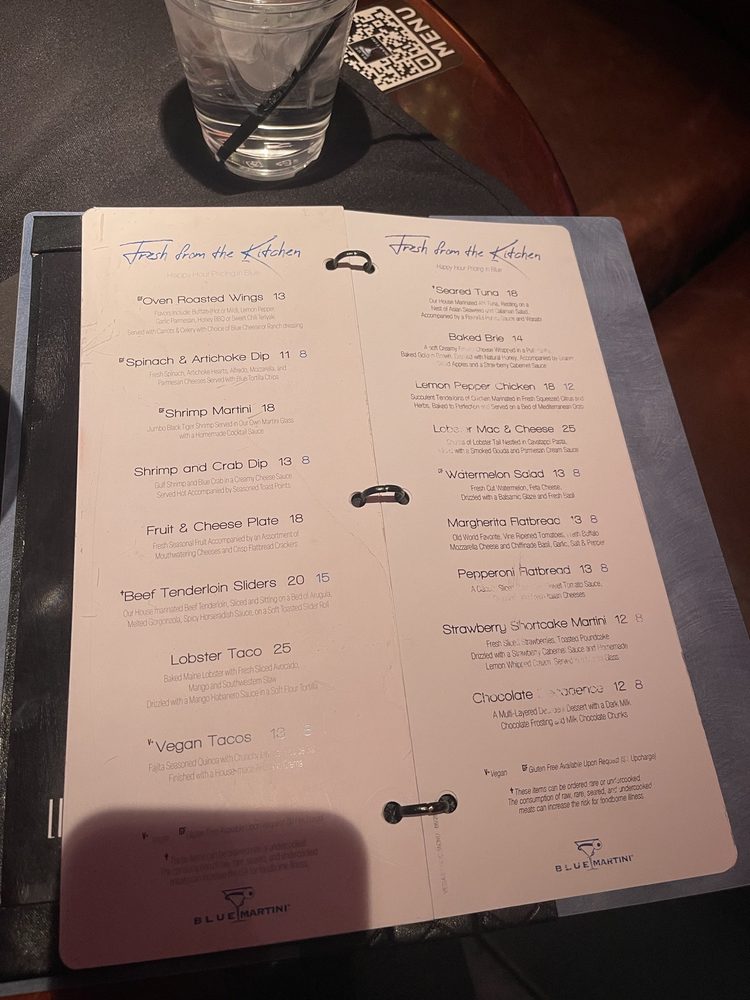 MENU
Fresh from the Kitchen
Happy Hour Pricing in Blue
GF Oven Roasted Wings 13
Flavors Include: Buffalo (Hot or Mild), Lemon Pepper,
Garlic Parmesan, Honey BBQ or Sweet Chili Teriyaki
Served with Carrots & Celery with Choice of Blue Cheese or Ranch dressing
GF Spinach & Artichoke Dip 11 8
Fresh Spinach, Artichoke Hearts, Alfredo, Mozzarella, and
Parmesan Cheeses Served with Blue Tortilla Chips
GF Shrimp Martini 18
Jumbo Black Tiger Shrimp Served in Our Own Martini Glass
with a Homemade Cocktail Sauce
Shrimp and Crab Dip 13 8
Gulf Shrimp and Blue Crab in a Creamy Cheese Sauce
Served Hot Accompanied by Seasoned Toast Points
Fruit & Cheese Plate 18
Fresh Seasonal Fruit Accompanied by an Assortment of
Mouthwatering Cheeses and Crisp Flatbread Crackers
†Beef Tenderloin Sliders 20 15
Our House marinated Beef Tenderloin, Sliced and Sitting on a Bed of Arugula,
Melted Gorgonzola, Spicy Horseradish Sauce, on a Soft Toasted Slider Roll
Lobster Taco 25
Baked Maine Lobster with Fresh Sliced Avocado,
Mango and Southwestern Slaw
Drizzled with a Mango Habanero Sauce in a Soft Flour Tortilla
V+ Vegan Tacos 13 8
Fajita Seasoned Quinoa with Crunchy
Finished with a House-made Crema
V+ Vegan GF Gluten Free Available Upon Request ($1 Upcharge)
† These items can be ordered rare or undercooked.
The consumption of raw, rare, seared, and undercooked
meats can increase the risk for foodborne illness
BLUE MARTINI
Fresh from the Kitchen
Happy Hour Pricing in Blue
†Seared Tuna 18
Our House Marinated Ahi Tuna, Resting on a
Nest of Asian Seaweed and Calamari Salad,
Accompanied by a Sauce and Wasabi
Baked Brie 14
A soft Creamy French Cheese Wrapped in a Puff
Baked Golden Brown, Drizzled with Natural Honey, Accompanied by Green
Sliced Apples and a Strawberry Cabernet Sauce
Lemon Pepper Chicken 18 12
Succulent Tenderloins of Chicken Marinated in Fresh Squeezed Citrus and
Herbs, Baked to Perfection and Served on a Bed of Mediterranean Orzo
Lobster Mac & Cheese 25
of Lobster Tail Nestled in Cavatappi Pasta,
with a Smoked Gouda and Parmesan Cream Sauce
GF Watermelon Salad 13 8
Fresh Cut Watermelon, Feta Cheese,
Drizzled with a Balsamic Glaze and Fresh Basil
Margherita Flatbread 13 8
Old World Favorite, Vine Ripened Tomatoes, Fresh Buffalo
Mozzarella Cheese and Chiffonade Basil, Garlic, Salt & Pepper
Pepperoni Flatbread 13 8
A Sweet Tomato Sauce,
Italian Cheeses
Strawberry Shortcake Martini 12 8
Fresh Sliced Strawberries, Toasted Poundcake
Drizzled with a Strawberry Cabernet Sauce and Homemade
Lemon Whipped Cream, Served Glass
Chocolate Experience 12 8
A Multi-Layered Dessert with a Dark Milk
Chocolate Frosting and Milk Chocolate Chunks
V+ Vegan GF Gluten Free Available Upon Request ($1 Upcharge)
† These items can be ordered rare or undercooked.
The consumption of raw, rare, seared, and undercooked
meats can increase the risk for foodborne illness
BLUE MARTINI